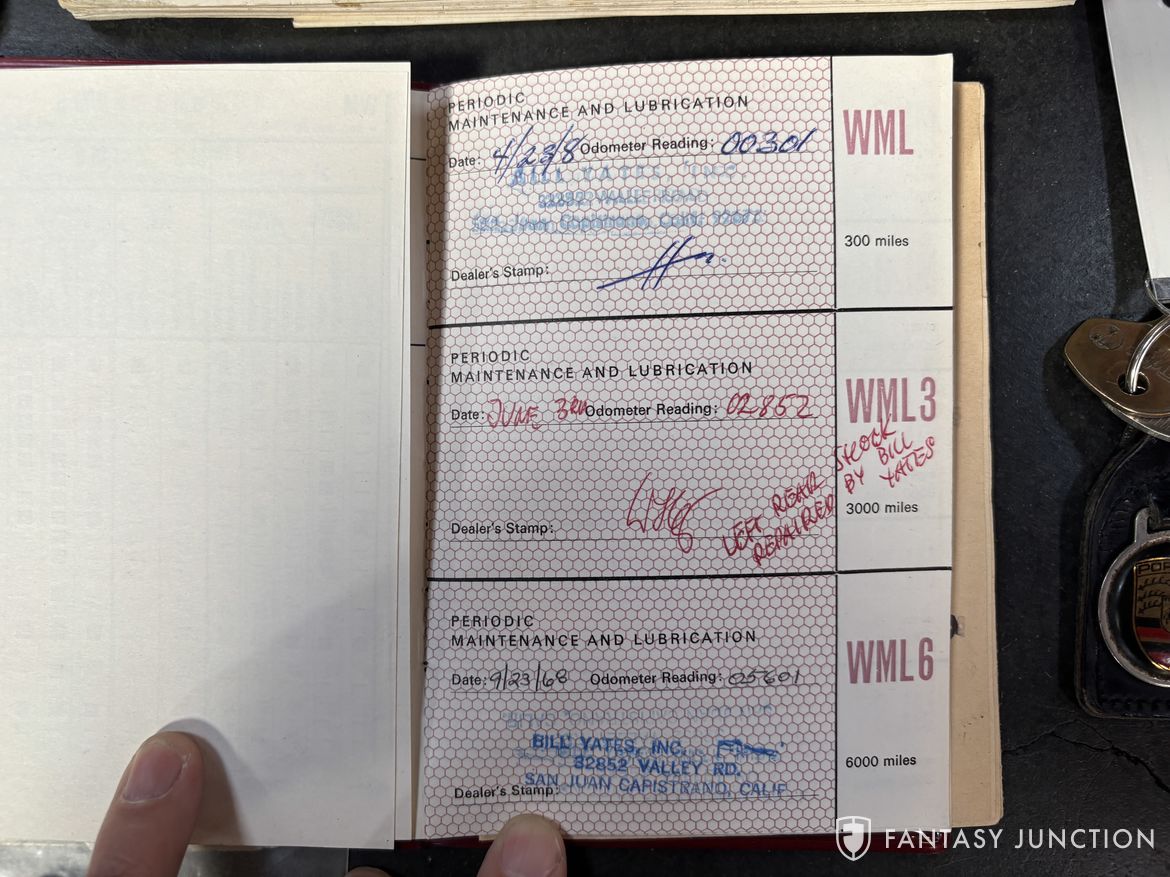 PERIODIC
MAINTENANCE AND LUBRICATION
Date: 4/23/8 Odometer Reading: 00301
BILL YATES INC.
Dealer's Stamp:
WML
300 miles
PERIODIC
MAINTENANCE AND LUBRICATION
Date: JUNE 3RD Odometer Reading: 02852
Dealer's Stamp:
LEFT REAR SHOCK
REPAIRED BY BILL
YATES
WML3
3000 miles
PERIODIC
MAINTENANCE AND LUBRICATION
Date: 9/23/68 Odometer Reading: 05601
BILL YATES, INC.
32852 VALLEY RD.
SAN JUAN CAPISTRANO, CALIF
Dealer's Stamp:
WML6
6000 miles
POR
FANTASY JUNCTION